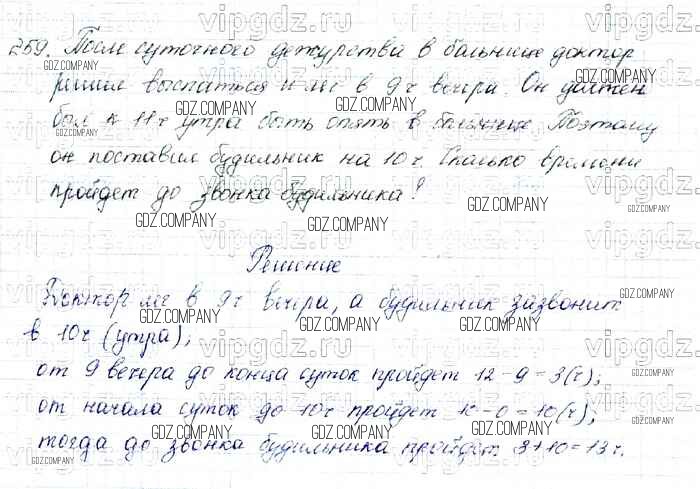 259. После суточного дежурства в больнице доктор
решил выспаться и лёг в 9 ч вечера. Он должен
был к 11 ч утра быть опять в больнице. Поэтому
он поставил будильник на 10 ч. Сколько времени
пройдет до звонка будильника?
Решение
Доктор лёг в 9 ч вечера, а будильник зазвонит
в 10 ч (утра);
от 9 вечера до конца суток пройдет 12 - 9 = 3 (ч);
от начала суток до 10 ч пройдет 10 - 0 = 10 (ч);
тогда до звонка будильника пройдет 3 + 10 = 13 ч.
GDZ.COMPANY
vipgdz.ru